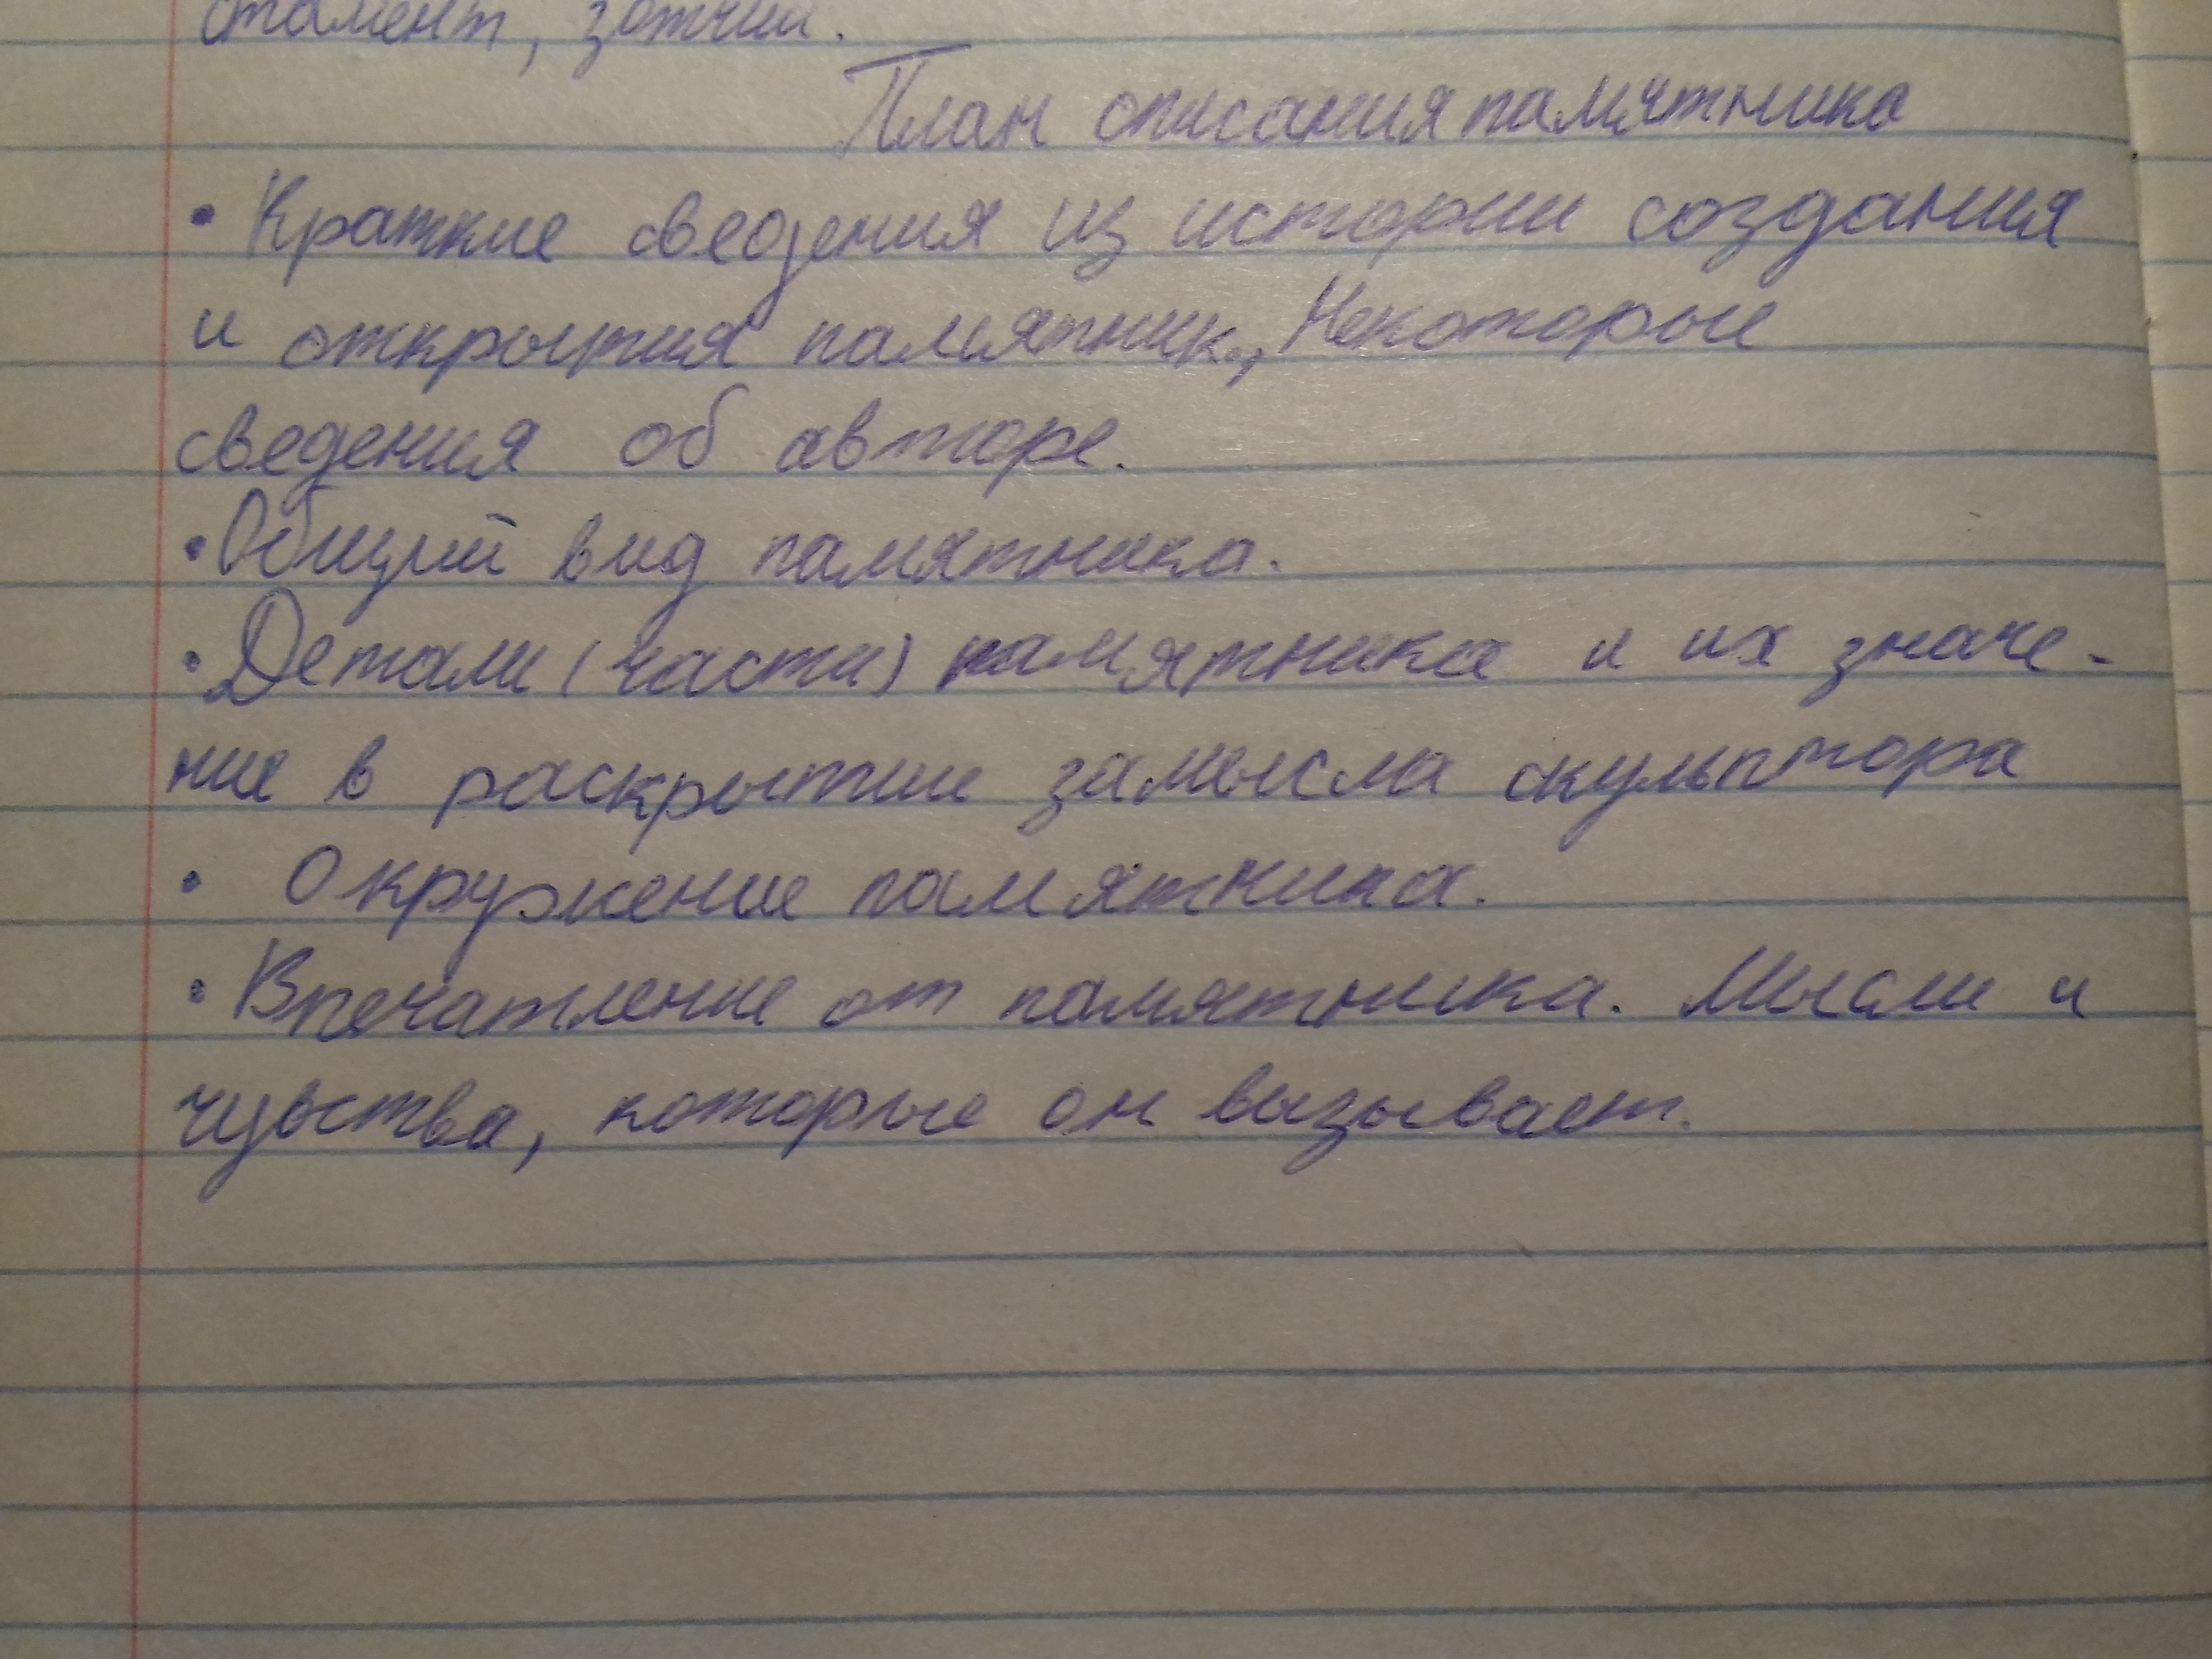 стамент, зотчии.
План описания памятника
• Краткие сведения из истории создания
и открытия памятник., Некоторые
сведения об авторе.
• Общий вид памятника.
• Детали (части) памятника и их значе-
ние в раскрытие замысла скульптора
• Окружение памятника.
• Впечатление от памятника. Мысли и
чувства, которые он вызывает.